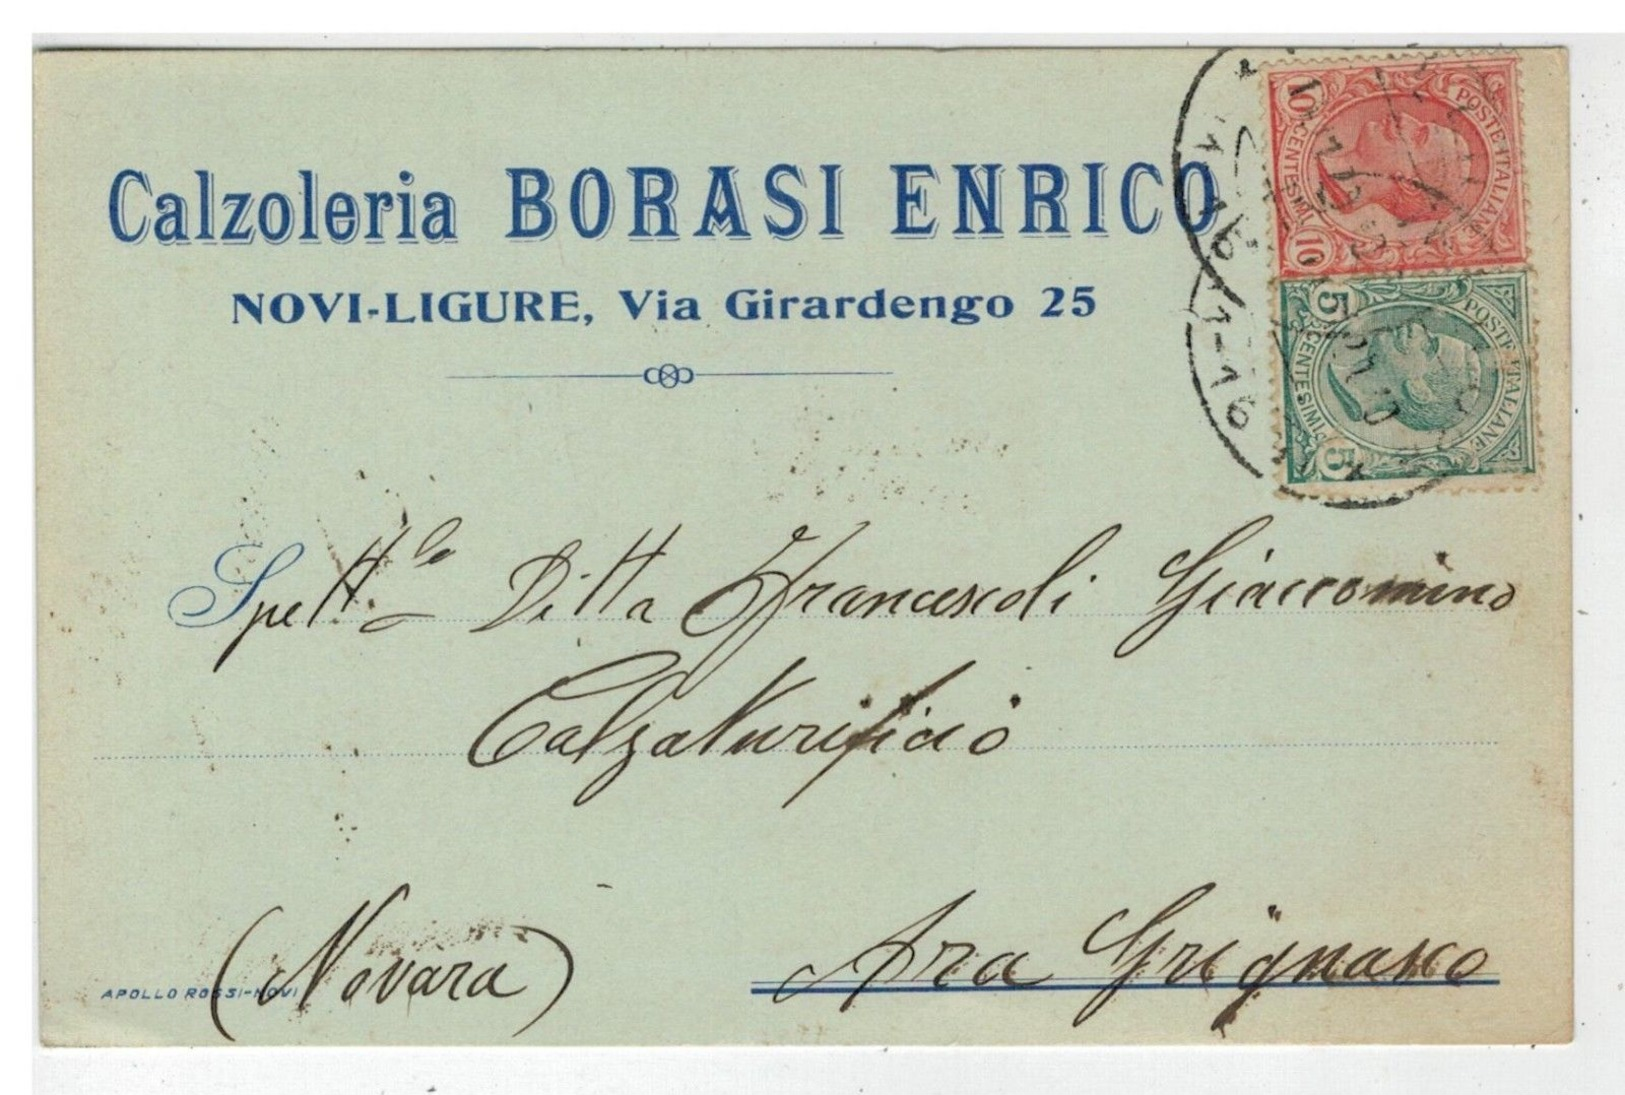 Calzoleria BORASI ENRICO
NOVI-LIGURE, Via Girardengo 25
10 CENTESIMI 10
POSTE ITALIANE
5 CENTESIMI 5
POSTE ITALIANE
Spett.le Ditta Francescoli Giaccomino
Calzaturificio
(Novara) Ara Grignasco
APOLLO ROSSI-NOVI